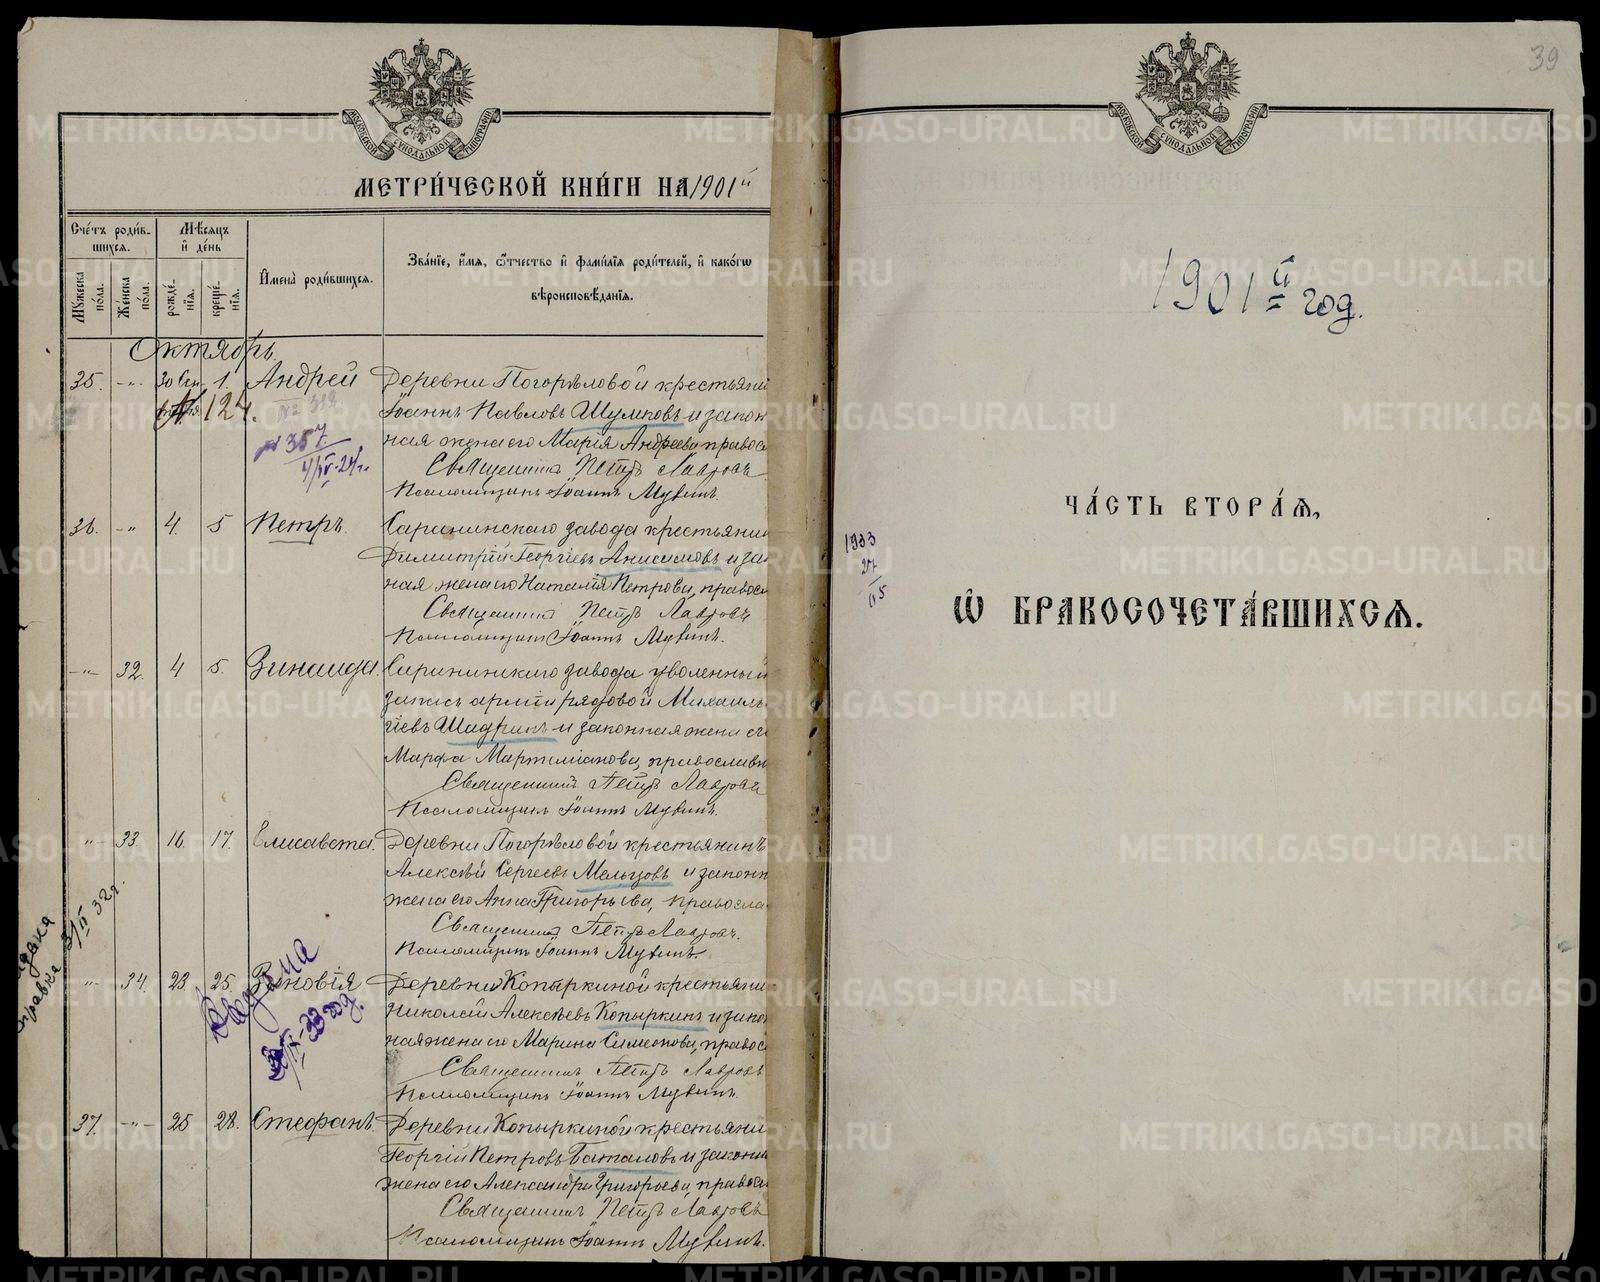 МОСКОВСКОЙ СѴНОДАЛЬНОЙ ТИПОГРАФІИ
МЕТРИ́ЧЕСКОЙ КНИ́ГИ НА 1901й
Сче́тъ роди́в-
шихся.
Мѣ́сяцъ
и҆ де́нь
Му́жеска по́ла.
Же́нска по́ла.
рожде́-
нїя.
креще́-
нїя.
И҆мена̀ роди́вшихся.
Зва́нїе, и҆́мя, ѻ҆́тчество и҆ фами́лїя роди́телей, и҆ како́гѡ
вѣроисповѣ́данїя.
Октябрь.
35. -"- 30 Сен- 1. Андрей Деревни Погорѣловой крестьянин
124. Іоаннъ Павловъ Шумковъ и закон
ная жена его Марія Андреева правос
№ 357
4/IV-24 г.
Священникъ Петръ Лавровъ
Псаломщикъ Іоаннъ Мувинъ.
36. -"- 4. 5 Петръ. Саринскаго завода крестьянин
Димитрій Георгіевъ Анисимовъ и за
ная жена его Наталія Петрова, правос
Священникъ Петръ Лавровъ
Псаломщикъ Іоаннъ Мувинъ.
-"- 32. 4 5. Зинаида. Саринскаго завода уволенный
запасъ арміи рядовой Михаилъ
гіевъ Шадринъ и законная жена ег
Марфа Мартиміанова, православн
Священникъ Петръ Лавровъ
Псаломщикъ Іоаннъ Мувинъ.
-"- 33. 16. 17. Елисавета. Деревни Погорѣловой крестьянинъ
Алексѣй Сергеевъ Мальцовъ и законн
жена его Анна Григорьева, правосла
Священникъ Петръ Лавровъ.
Псаломщикъ Іоаннъ Мувинъ.
справка 3/II 32 г.
-"- 34. 23 25. Зиновія Деревни Копыркиной крестьянин
Николай Алексѣевъ Копыркинъ и закон
ная жена его Марина Симеонова, правос
Священникъ Петръ Лавровъ
Псаломщикъ Іоаннъ Мувинъ.
37. -"- 25 28. Стефанъ. Деревни Копыркиной крестьяни
Георгій Петровъ Баталовъ и законн
жена его Александра Григорьева, правос
Священникъ Петръ Лавровъ
Псаломщикъ Іоаннъ Мувинъ.
39
МОСКОВСКОЙ СѴНОДАЛЬНОЙ ТИПОГРАФІИ
1901й год.
ЧА́СТЬ ВТОРА́Я,
Ѡ҆ БРАКОСОЧЕТА́ВШИХСЯ.
1933
27
II 5
METRIKI.GASO-URAL.RU